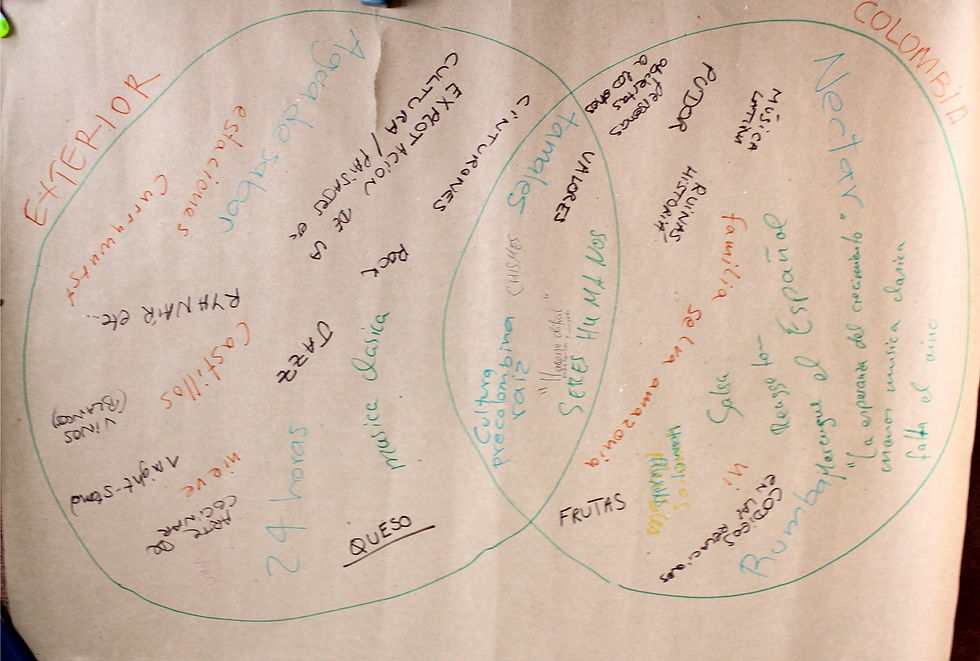 EXTERIOR
Agua de sabor
estaciones
Currywurst
CULTURA /
EXPLOTACIÓN DE LA
PAISAJES etc
CINTURONES
ROCK
RYANAIR etc...
Castillos
JAZZ
musica clasica
VINOS
(BLANCOS)
1 night-stand
nieve
ARTE
DE
COCINAR
24 horas
QUESO
tamales
VALORES
CHISMES
Cultura
precolombina
raiz
SERES HUMANOS
COLOMBIA
Nectar
personas
abiertas
a los otros
PUDOR
MÚSICA
LATINA
RUINAS
HISTORIA
familia
Selva amazonia
Salsa
Reaggeton
Merengue
el Español
"La esperanza del crecimiento"
menos musica clasica
falta el vino
FRUTAS
CODIGOS
EN LAS
RELACIONES
Rumba